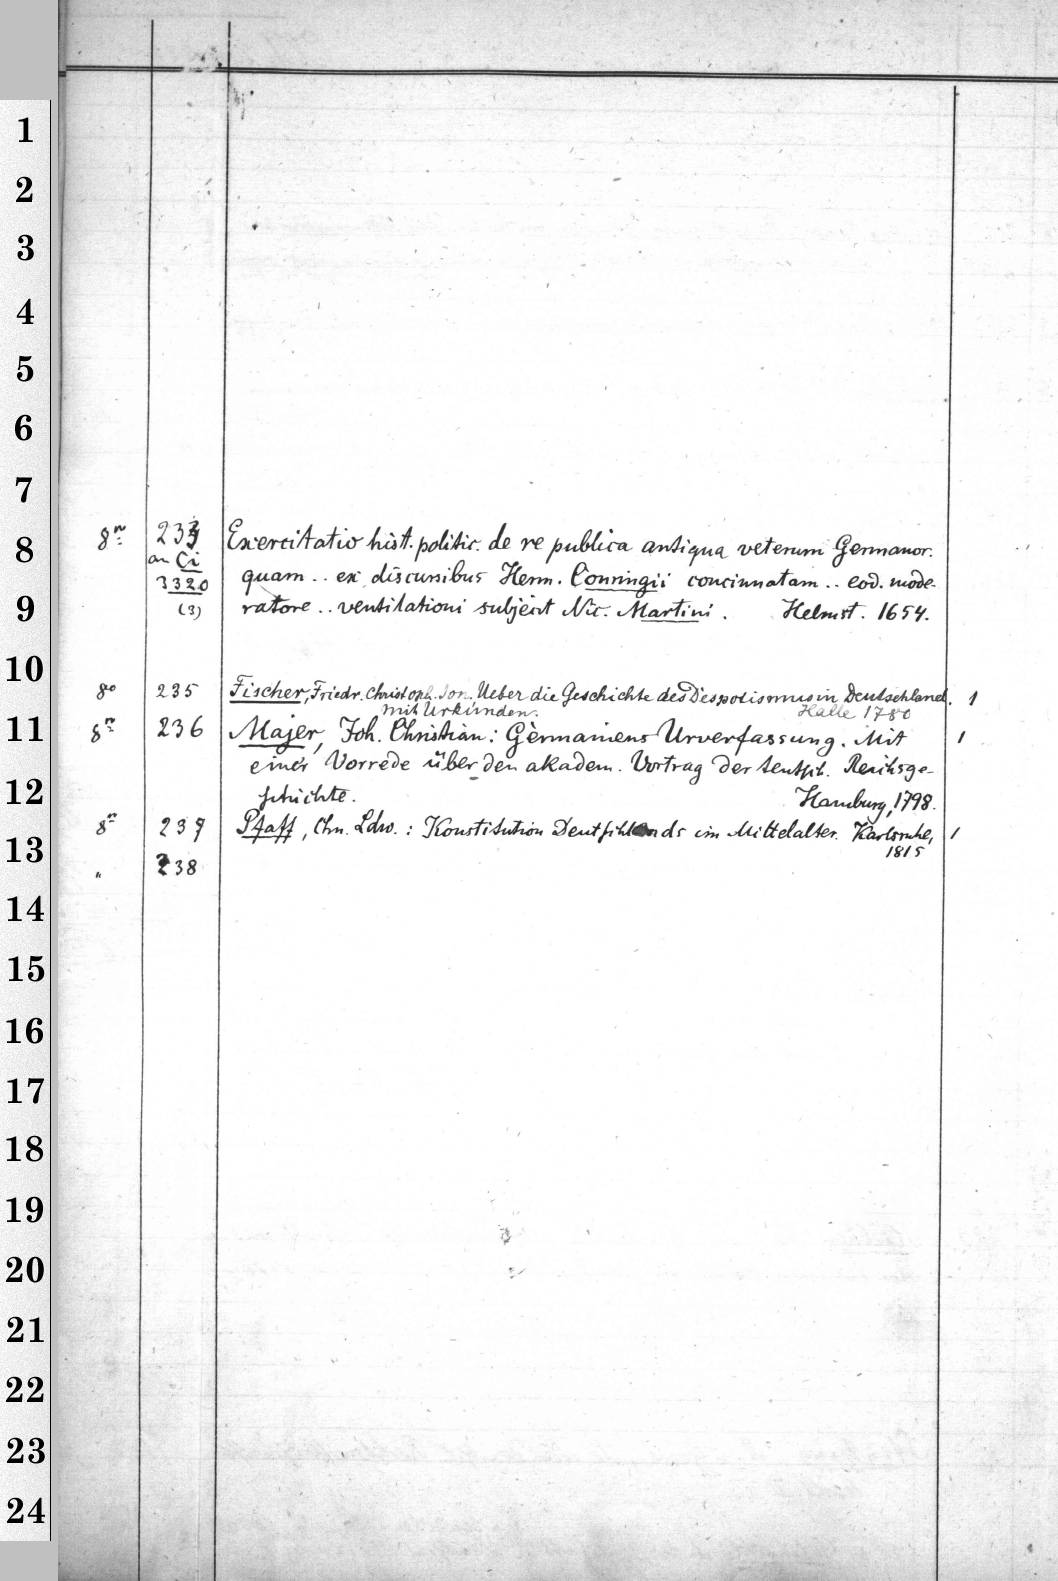 1
2
3
4
5
6
7
8
9
10
11
12
13
14
15
16
17
18
19
20
21
22
23
24
8º 233 Exercitatio hist. politic. de re publica antiqua veterum Germanor.
an Ci
3320 quam .. ex discursibus Herm. Conringii concinnatam .. eod. mode-
(3) ratore .. ventilationi subjecit Nic. Martini. Helmst. 1654.
8º 235 Fischer, Friedr. Christoph. Jon. Ueber die Geschichte des Despotismus in Deutschland. 1
mit Urkunden. Halle 1780
8º 236 Majer, Joh. Christian: Germaniens Urverfassung. Mit 1
einer Vorrede über den akadem. Vortrag der teutsch. Reichsge-
schichte. Hamburg, 1798.
8º 237 Pfaff, Chn. Ldw.: Konstitution Deutschlands im Mittelalter. Karlsruhe, 1
1815
" 238